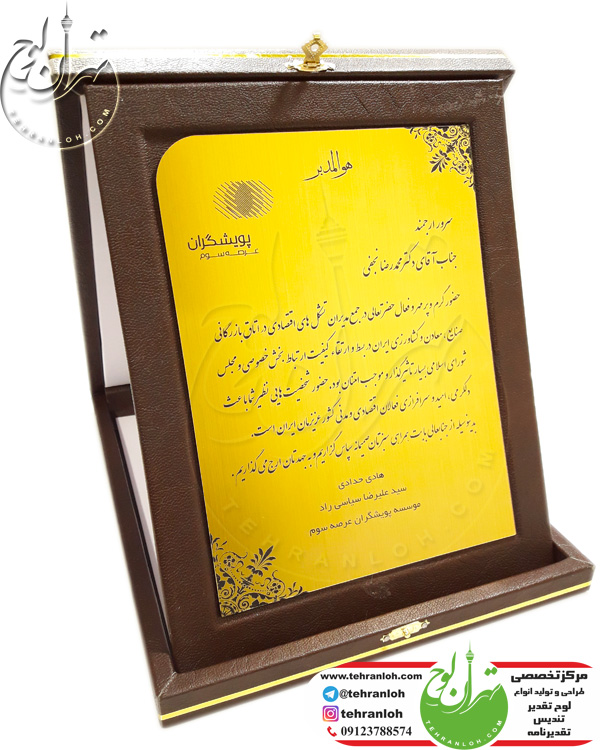 هوالمدبر
پویشگران
عرصه سوم
سرور ارجمند
جناب آقای دکتر محمدرضا نجفی
حضور گرم و پرمهر و فعال حضرتعالی در جمع مدیران تشکل های اقتصادی در اتاق بازرگانی
صنایع، معادن و کشاورزی ایران در بسط و ارتقاء کیفیت ارتباط بخش خصوصی و مجلس
شورای اسلامی بسیار تاثیرگذار و موجب امتنان بود. حضور شخصیت هایی نظیر شما باعث
دلگرمی، امید و سرافرازی فعالان اقتصادی و مدنی کشور عزیزمان ایران است.
بدینوسیله از جنابعالی بابت همراهی سبزتان صمیمانه سپاس گزاریم و به جهدتان ارج می گذاریم.
هادی حدادی
سید علیرضا سیاسی راد
موسسه پویشگران عرصه سوم
تهران لوح
TEHRANLOH.COM
TEHRANLOH.COM
مرکز تخصصی
طراحی و تولید انواع
لوح تقدیر
تندیس
تقدیرنامه
تهران لوح
TEHRANLOH.COM
www.tehranloh.com
@tehranloh
tehranloh
09123788574